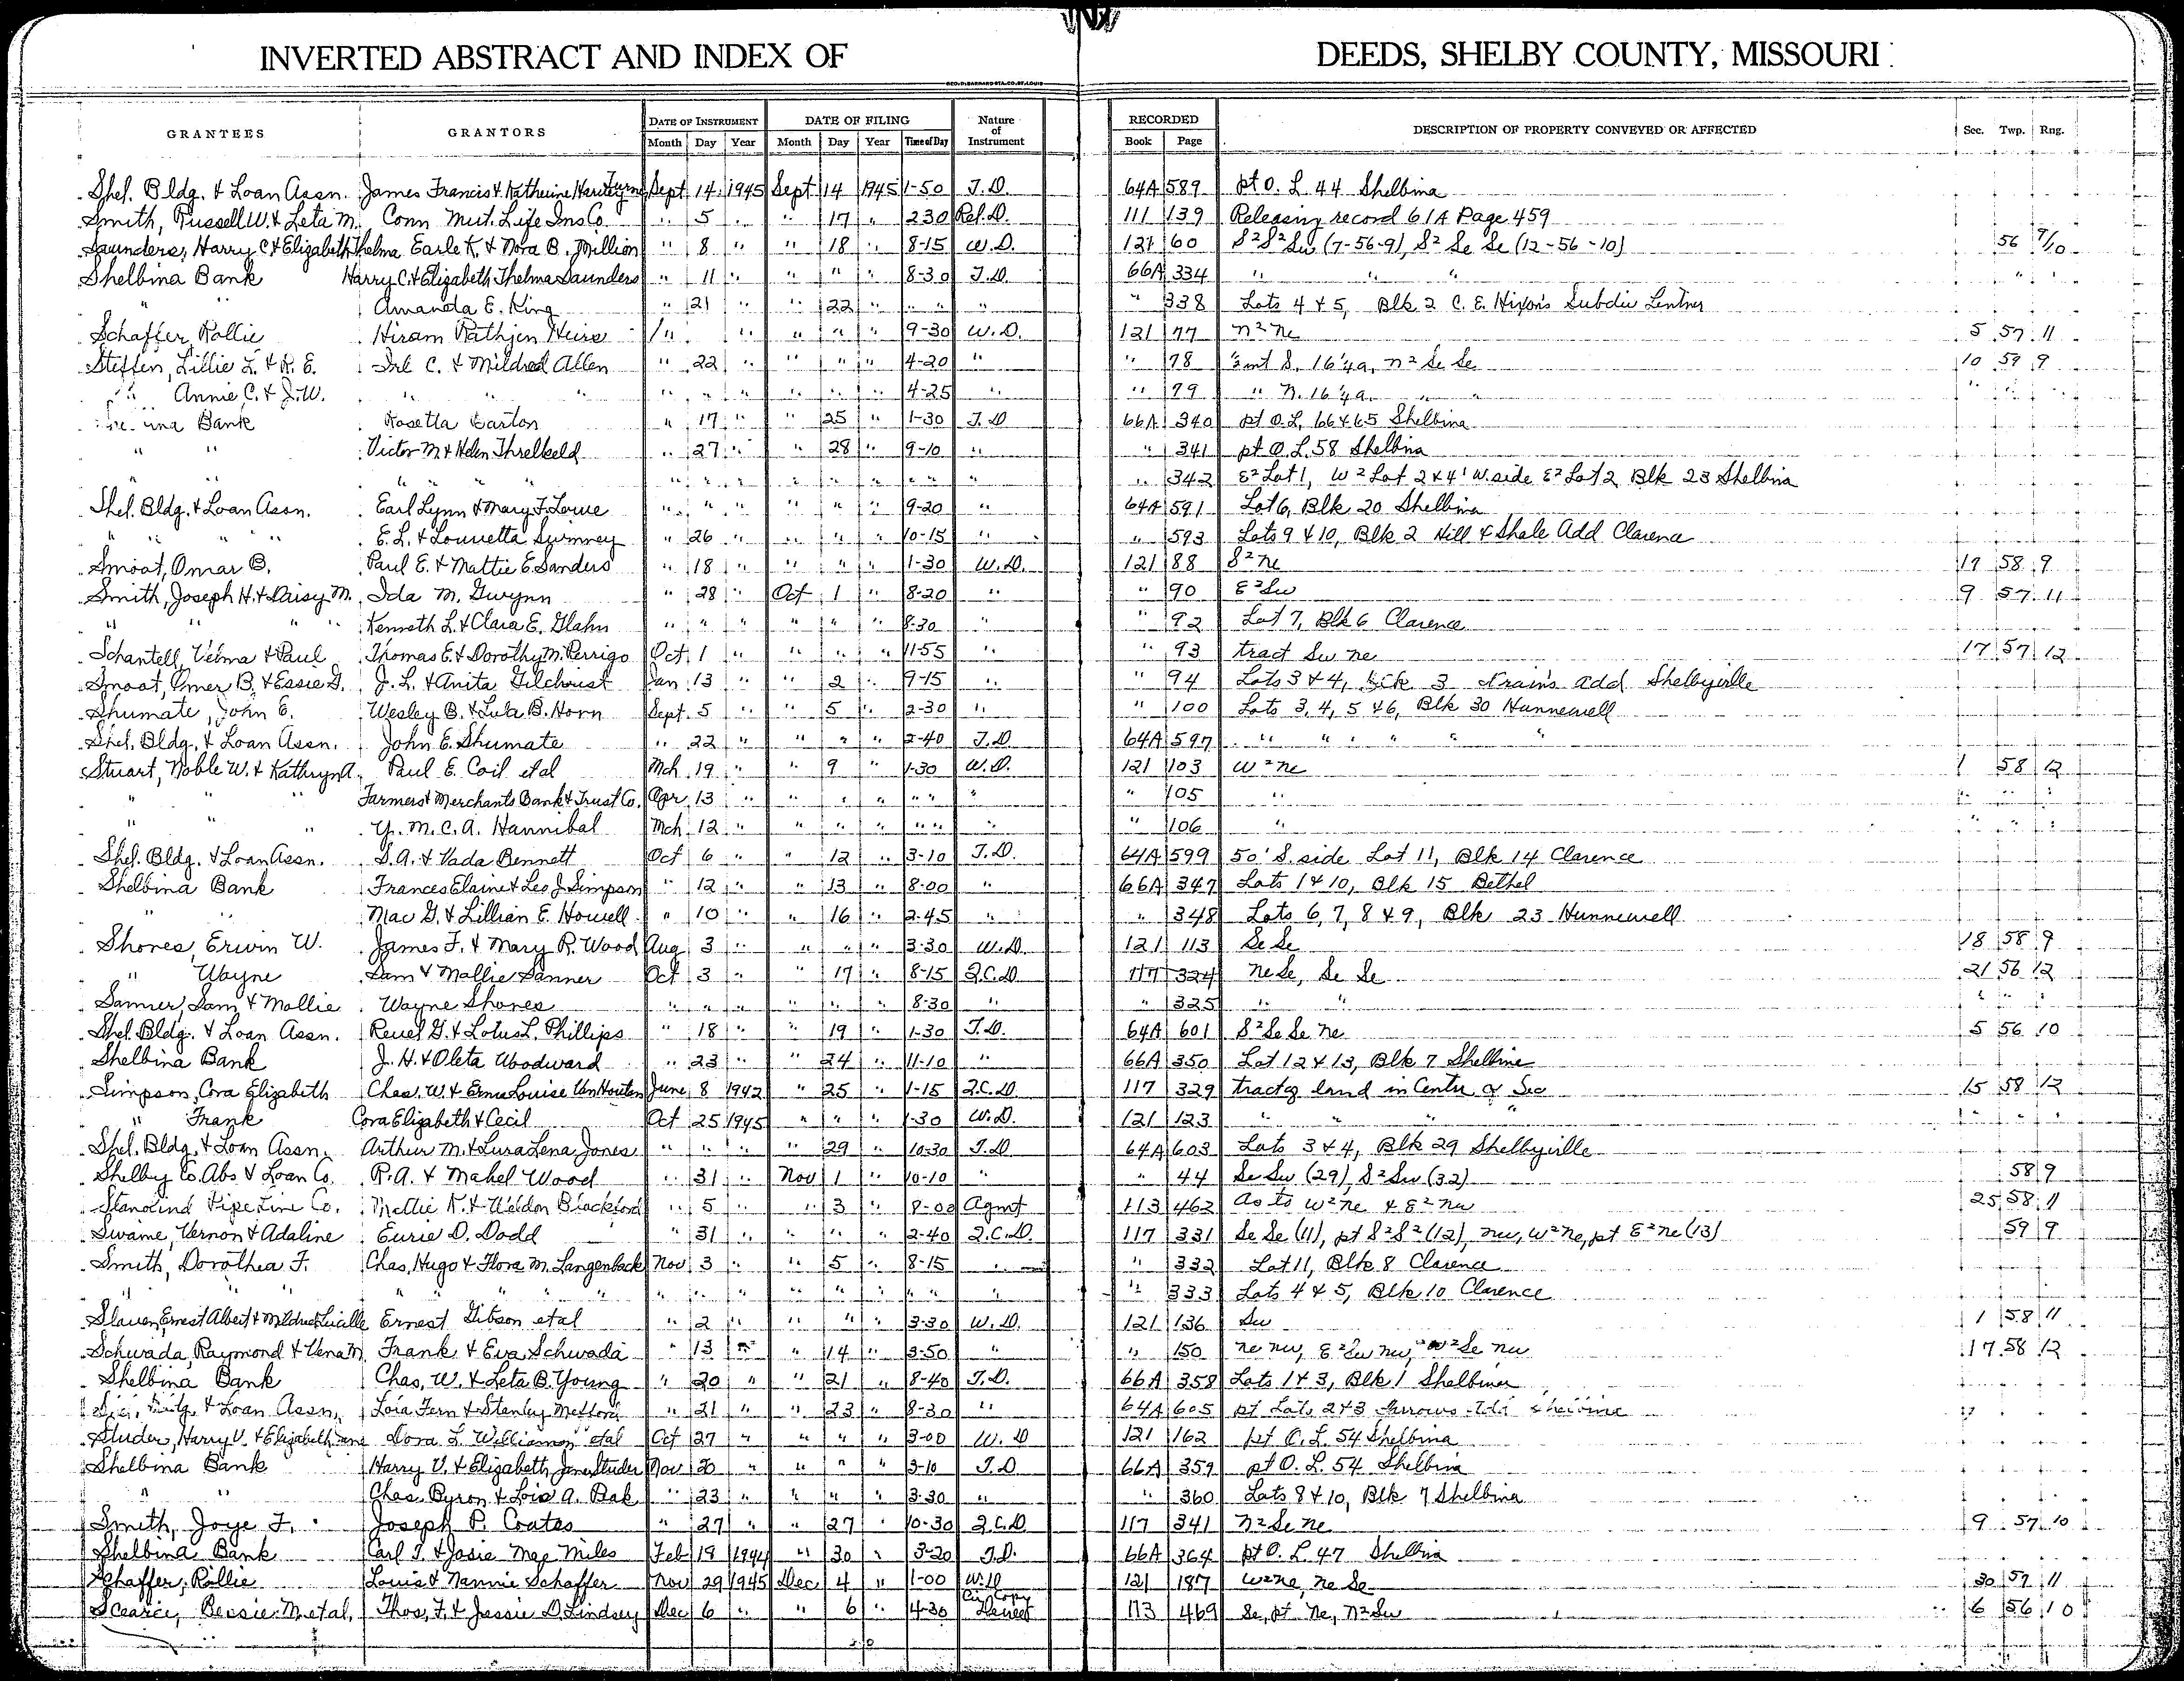 INVERTED ABSTRACT AND INDEX OF DEEDS, SHELBY COUNTY, MISSOURI
GRANTEES GRANTORS DATE OF INSTRUMENT DATE OF FILING Nature of Instrument RECORDED DESCRIPTION OF PROPERTY CONVEYED OR AFFECTED Sec. Twp. Rng.
Month Day Year Month Day Year Time of Day Book Page
Shel. Bldg. & Loan Assn. James Francis & Katherine Turner Sept 14 1945 Sept 14 1945 1-50 T.D. 64A 589 pt O. L. 44 Shelbina
Smith, Russell W. & Leta M. Conn Mut. Life Ins Co. " 5 " " 17 " 2 30 Rel. D. 111 139 Releasing record 61A Page 459
Saunders, Harry C & Elizabeth Thelma Earle K. & Nora B. Million " 8 " " 18 " 8-15 W.D. 121 60 S² S² Sw (7-56-9), S² Se Se (12-56-10) 56 9/10
Shelbina Bank Harry C. & Elizabeth Thelma Saunders " 11 " " " " 8-30 T.D. 66A 334 " " " " "
" " Amanda E. King " 21 " " 22 " " " " " 338 Lots 4 & 5, Blk 2 C. E. Hixon's Subdiv Lentner
Schaffer, Rollie Hiram Rathjen Heirs " " " " " 9-30 W.D. 121 77 N² Ne 5 57 11
Steffen, Lillie L. & R. E. Irl C. & Mildred Allen " 22 " " " " 4-20 " " 78 S. 16 ¼a, N² Se Se 10 59 9
" Annie C. & J.W. " " " " " " " " " 4-25 " " 79 " N. 16 ¼a. " " " "
Bank Rosetta Barton " 17 " " 25 " 1-30 T.D 66A 340 pt O.L. 66 & 65 Shelbina
" " Victor M & Helen Threlkeld " 27 " " 28 " 9-10 " " 341 pt O.L. 58 Shelbina
" " " " " " " " " " " " " 342 E² Lot 1, W² Lot 2 & 4' W. side E² Lot 2 Blk 23 Shelbina
Shel. Bldg. & Loan Assn. Earl Lynn & Mary F. Lowe " " " " " " 9-20 " 64A 591 Lot 6, Blk 20 Shelbina
" " " " E. L. & Lounetta Surmney " 26 " " " " 10-15 " " 593 Lots 9 & 10, Blk 2 Hill & Shale Add Clarence
Smoot, Omar B. Paul E. & Mattie E. Sanders " 18 " " " " 1-30 W.D. 121 88 S² Ne 17 58 9
Smith, Joseph H. & Daisy M. Ida M. Gwynn " 28 " Oct 1 " 8-20 " " 90 E² Sw 9 57 11
" " " " Kenneth L. & Clara E. Glahn " " " " " " 8-30 " " 92 Lot 7, Blk 6 Clarence
Schantell, Velma & Paul Thomas E. & Dorothy M. Perrigo Oct 1 " " " " 11-55 " " 93 tract Sw Ne 17 57 12
Smoot, Omer B. & Essie G. J. L. & Anita Gilchrist Jan 13 " " 2 " 9-15 " " 94 Lots 3 & 4, Blk 3 Add Shelbyville
Shumate, John E. Wesley B. & Lula B. Horn Sept. 5 " " 5 " 2-30 " " 100 Lots 3, 4, 5 & 6, Blk 30 Hunnewell
Shel. Bldg. & Loan Assn. John E. Shumate " 22 " " " " 2-40 T.D. 64A 597 " " " " "
Stuart, Noble W. & Kathryn A. Paul E. Coil etal Mch 19 " " 9 " 1-30 W.D. 121 103 W² Ne 1 58 12
" " " Farmers & Merchants Bank & Trust Co. Apr 13 " " " " " " " " 105 " " " "
" " " Y. M. C. A. Hannibal Mch 12 " " " " " " " " 106 " " " "
Shel. Bldg. & Loan Assn. S. A. & Vada Bennett Oct 6 " " 12 " 3-10 T.D. 64A 599 50' S. side Lot 11, Blk 14 Clarence
Shelbina Bank Frances Elaine & Leo J. Simpson " 12 " " 13 " 8-00 " 66A 347 Lots 1 & 10, Blk 15 Bethel
" " Mac G. & Lillian E. Howell " 10 " " 16 " 2-45 " " 348 Lots 6, 7, 8 & 9, Blk 23 Hunnewell
Shores, Erwin W. James F. & Mary R. Wood Aug 3 " " " " 3-30 W.D. 121 113 Se Se 18 58 9
" Wayne Sam & Mollie Sanner Oct 3 " " 17 " 8-15 Q.C.D 117 324 Ne Se, Se Se 21 56 12
Sanner, Sam & Mollie Wayne Shores " " " " " " 8-30 " " 325 " " " " "
Shel. Bldg. & Loan Assn. Reuel G. & Lotus L. Phillips " 18 " " 19 " 1-30 T.D. 64A 601 S² Se Se Ne 5 56 10
Shelbina Bank J. H. & Oleta Woodward " 23 " " 24 " 11-10 " 66A 350 Lot 12 & 13, Blk 7 Shelbina
Simpson, Cora Elizabeth Chas. W. & Erma Louise VanHouten June 8 1942 " 25 " 1-15 Q.C.D. 117 329 tract of land in Center of Sec 15 58 12
" Frank Cora Elizabeth & Cecil Oct 25 1945 " " " 1-30 W.D. 121 123 " " " " " "
Shel. Bldg. & Loan Assn. Arthur M. & Lura Lena Jones " " " " 29 " 10-30 T.D 64A 603 Lots 3 & 4, Blk 29 Shelbyville
Shelby Co. Abs & Loan Co. R. A. & Mabel Wood " 31 " Nov 1 " 10-10 " " 44 Se Sw (29), S² Sw (32) 58 9
Stanolind Pipe Line Co. Mollie K. & Weldon Blackford " 5 " " 3 " 8-00 Agmt 113 462 As to W² Ne & E² Nw 25 58 11
Swaine, Vernon & Adaline Eurie D. Dodd " 31 " " " " 2-40 Q.C.D. 117 331 Se Se (11), pt S² S² (12), Nw, W² Ne, pt E² Ne (13) 59 9
Smith, Dorothea F. Chas. Hugo & Flora M. Langenback Nov 3 " " 5 " 8-15 " " 332 Lot 11, Blk 8 Clarence
" " " " " " " " " " " " " " 333 Lots 4 & 5, Blk 10 Clarence
Slaven, Ernest Albert & Mildred Lucille Ernest Gibson etal " 2 " " " " 3-30 W.D. 121 136 Sw 1 58 11
Schwada, Raymond & Vena M. Frank & Eva Schwada " 13 " " 14 " 3-50 " " 150 Ne Nw, E² Sw Nw, W² Se Nw 17 58 12
Shelbina Bank Chas. W. & Leta B. Young " 20 " " 21 " 8-40 T.D. 66A 358 Lots 1 & 3, Blk 1 Shelbina
& Loan Assn. Lois Fern & Stanley " 21 " " 23 " 8-30 " 64A 605 pt Lots 2 & 3
Studer, Harry V. & Elizabeth Jane Dora L. Williamson etal Oct 27 " " " " 3-00 W.D 121 162 pt O. L. 54 Shelbina
Shelbina Bank Harry V. & Elizabeth Jane Studer Nov 20 " " " " 3-10 T.D 66A 359 pt O. L. 54 Shelbina
" " Chas. Byron & Lois A. Bak " 23 " " " " 3-30 " " 360 Lots 8 & 10, Blk 7 Shelbina
Smith, Joye F. Joseph P. Coates " 27 " " 27 " 10-30 Q.C.D 117 341 N² Se Ne 9 57 10
Shelbina Bank Carl T. & Josie Mae Miles Feb 19 1944 " 30 " 3-20 T.D. 66A 364 pt O. L. 47 Shelbina
Schaffer, Rollie Louis & Nannie Schaffer Nov 29 1945 Dec 4 " 1-00 W.D 121 187 W² Ne, Ne Se 30 59 11
Scearce, Bessie M. etal, Thos. F. & Jessie D. Lindsey Dec 6 " " 6 " 4-30 Copy 113 469 Se, pt Ne, N² Sw 6 56 10